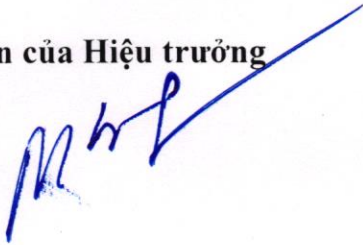 của Hiệu trưởng